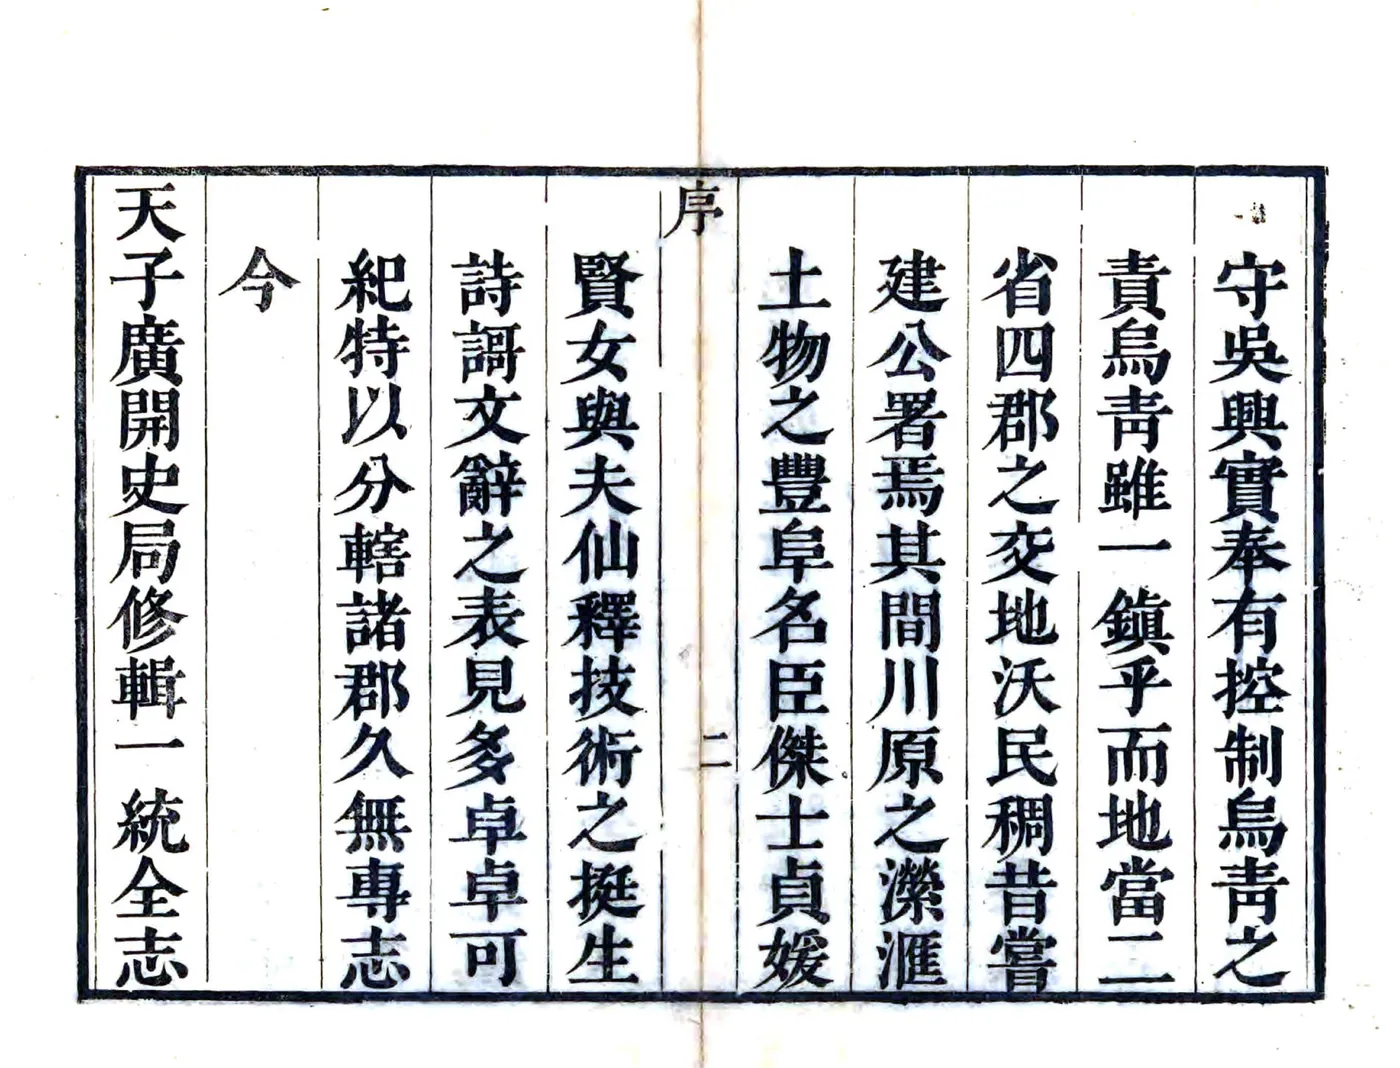 守吳興實奉有控制烏青之
責烏青雖一鎮乎而地當二
省四郡之交地沃民稠昔嘗
建公署焉其間川原之濚滙
土物之豐阜名臣傑士貞媛
序
二
賢女與夫仙釋技術之挺生
詩謌文辭之表見多卓卓可
紀特以分轄諸郡久無專志
今
天子廣開史局修輯一統全志